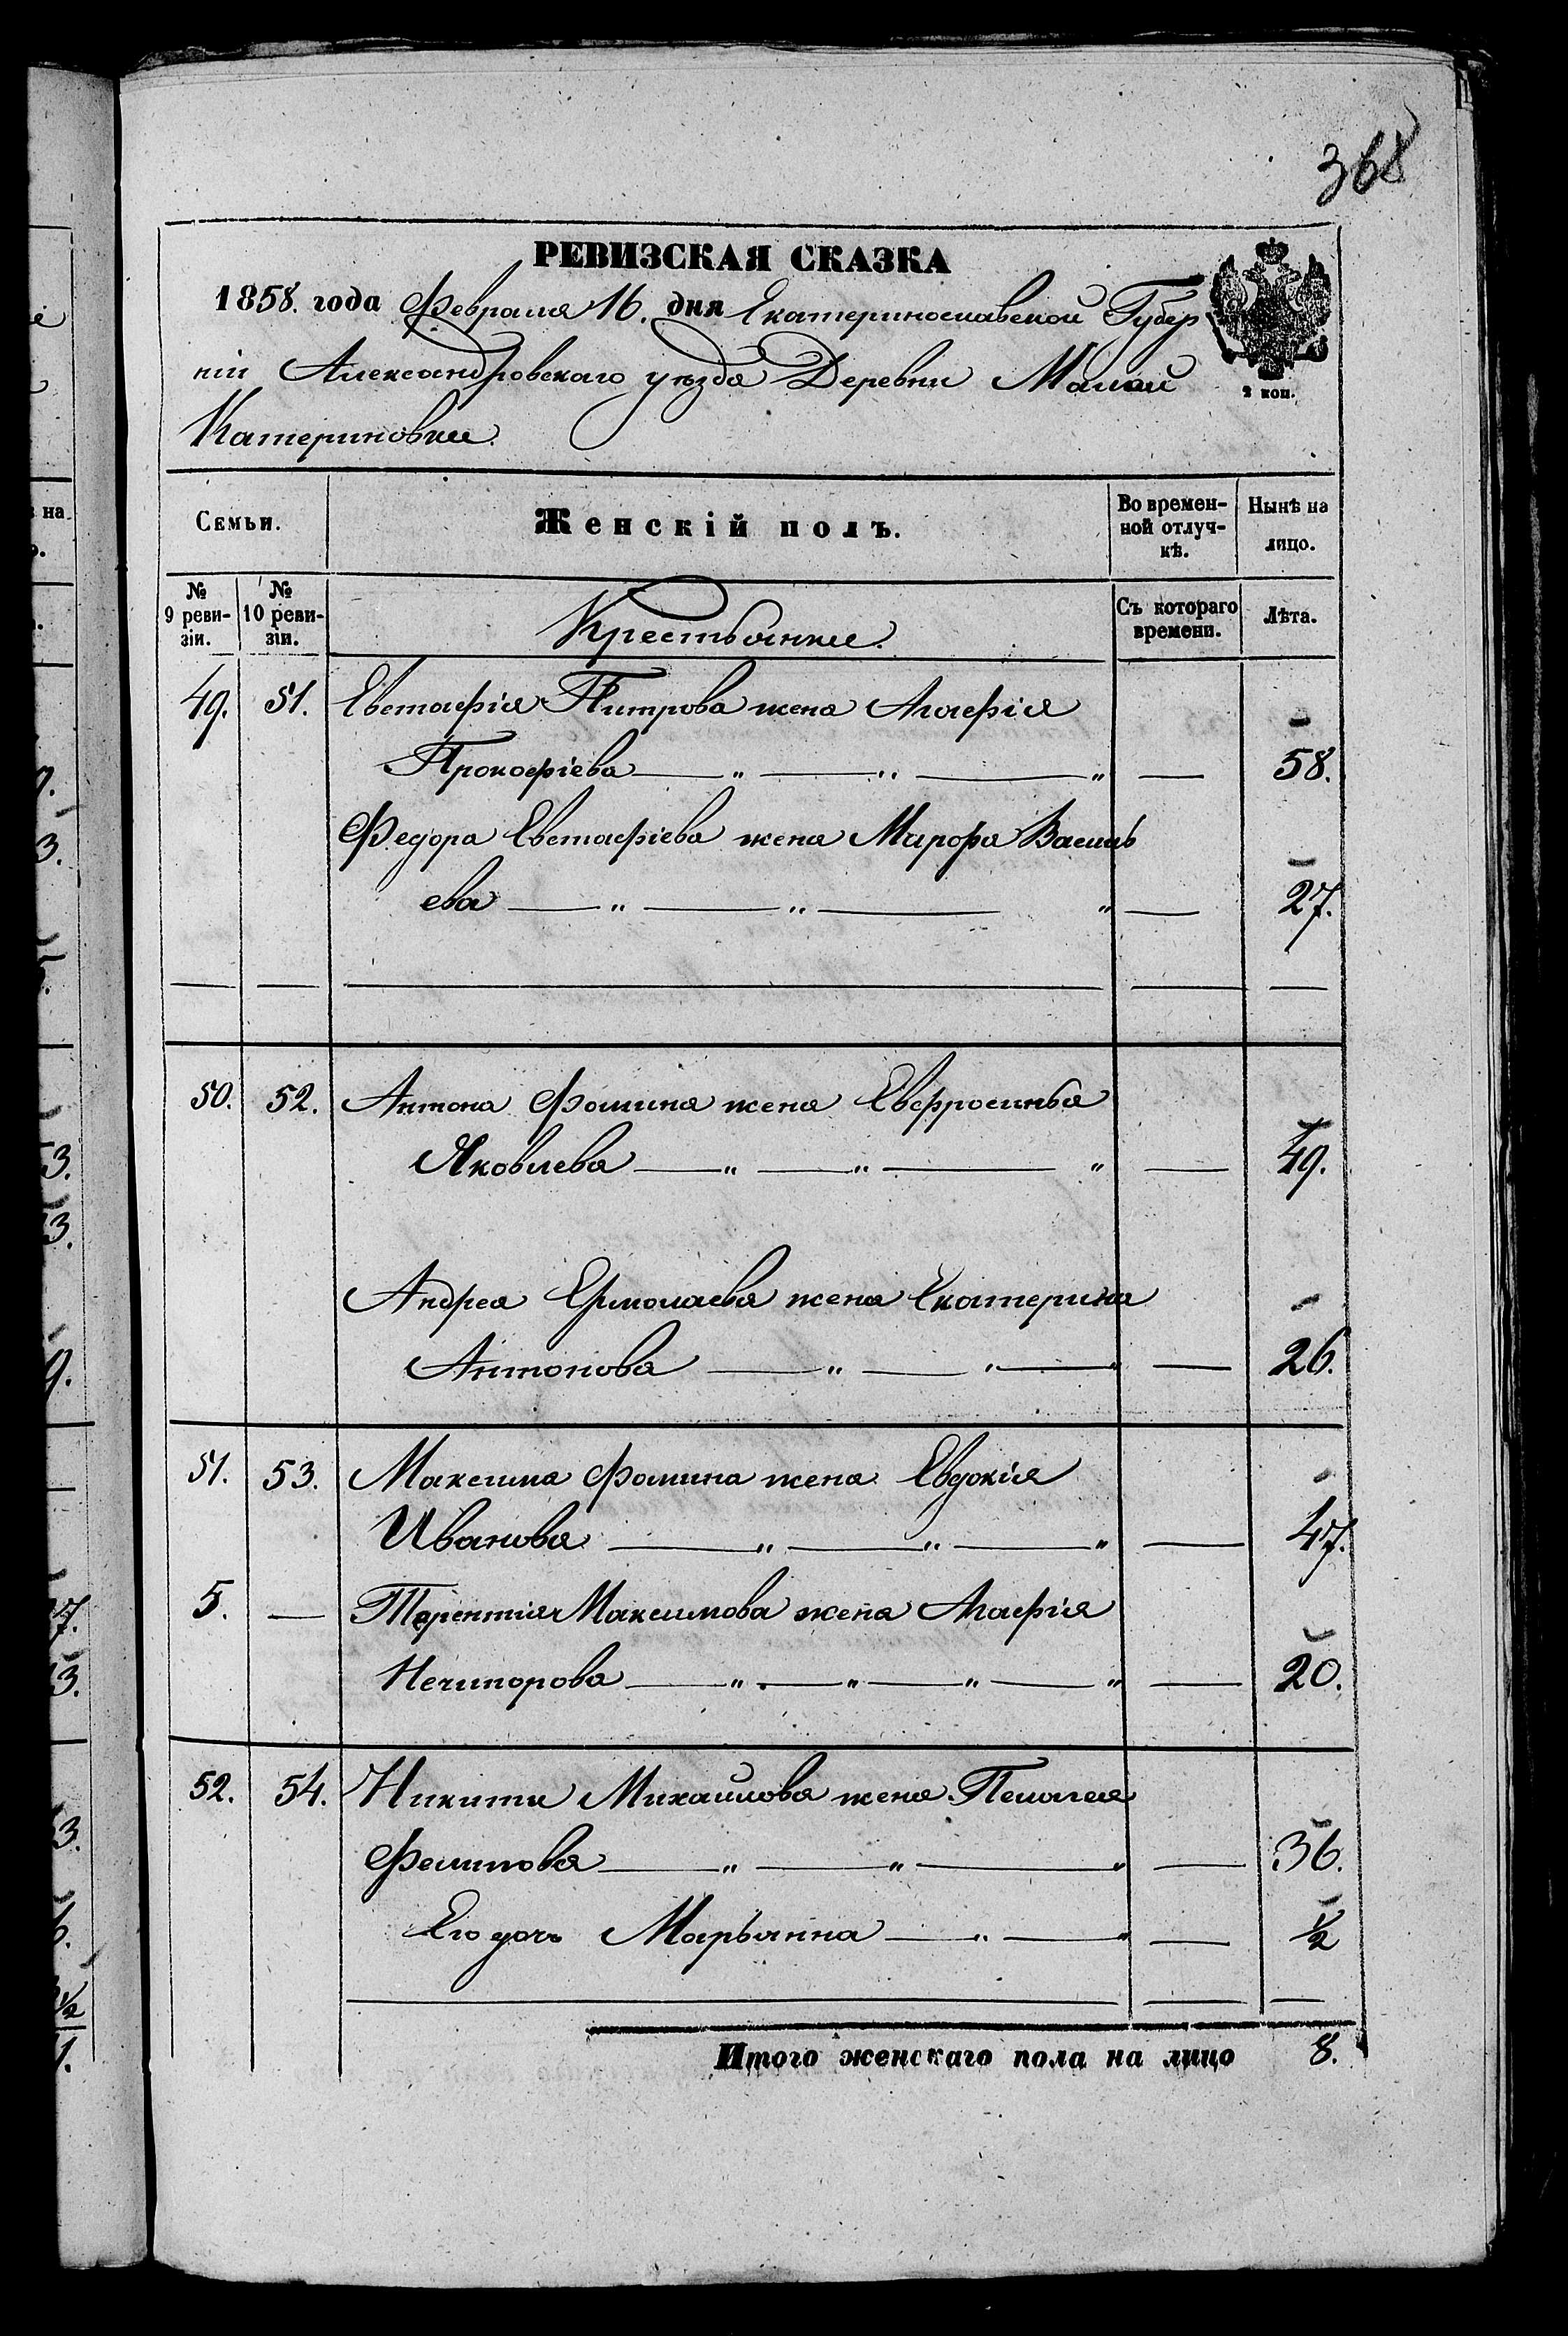 368
РЕВИЗСКАЯ СКАЗКА
1858. года Февраля 16. дня Екатеринославской Губер
ніи Александровскаго уѣзда Деревни Малой
2 коп.
Катериновки.
Семьи. Женскій полъ. Во времен-
ной отлуч-
кѣ. Нынѣ на
лицо.
№
9 реви-
зіи. №
10 реви-
зіи. Крестьянки. Съ котораго
времени. Лѣта.
49. 51. Евстафія Питрова жена Агафія
Прокофіева — „ — „ — „ — 58.
Федора Евстафіева жена Марфа Василь
ева — „ — „ — „ — 27.
50. 52. Антона Фомина жена Евфросинья
Яковлева — „ — „ — „ — 49.
Андрея Ермолаева жена Екатерина
Антонова — „ — „ — — 26.
51. 53. Максима Фомина жена Евдокія
Иванова — „ — „ — „ — 47.
5. — Терентія Максимова жена Агафія
Нечипорова — „ — „ — „ — „ — 20.
52. 54. Никиты Михайлова жена Пелагея
Филипова — „ — „ — „ — 36.
Его дочь Марьянна — „ — „ — ½
Итого женскаго пола на лицо 8.